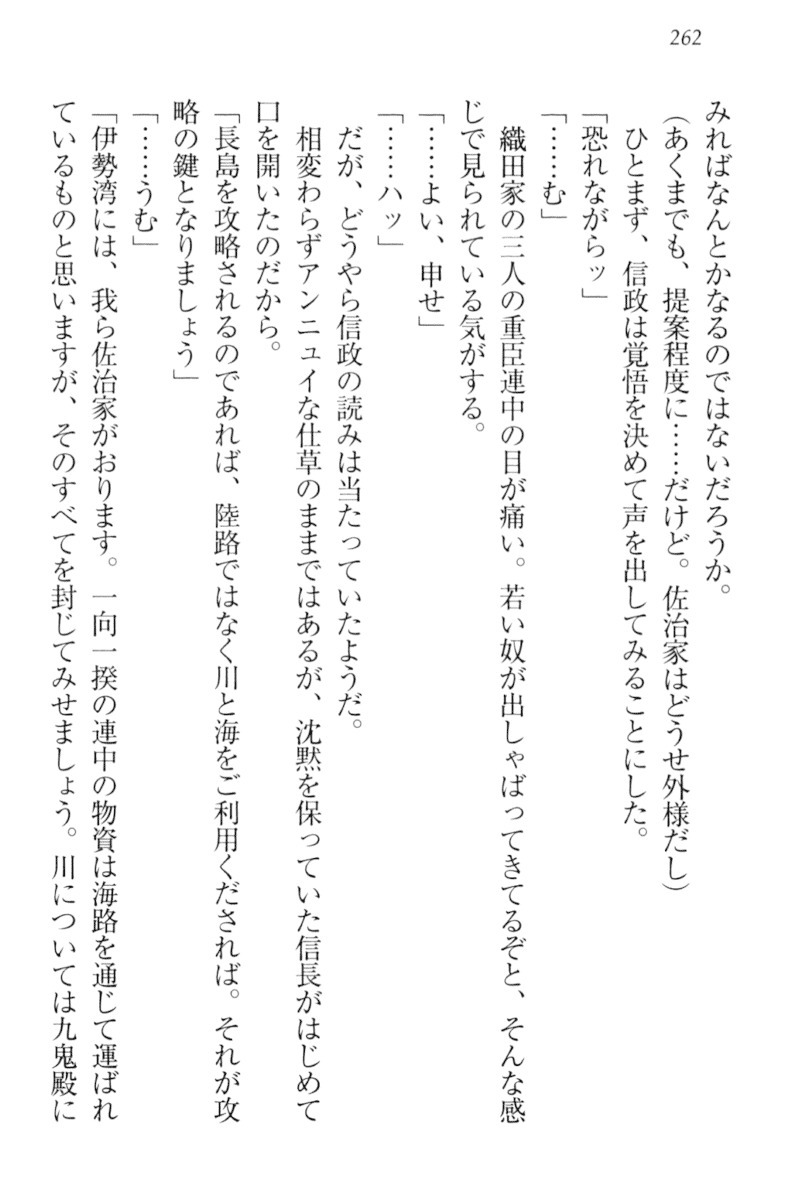 262
みればなんとかなるのではないだろうか。
(あくまでも、提案程度に……だけど。佐治家はどうせ外様だし)
ひとまず、信政は覚悟を決めて声を出してみることにした。
「恐れながらッ」
「……む」
織田家の三人の重臣連中の目が痛い。若い奴が出しゃばってきてるぞと、そんな感
じで見られている気がする。
「……よい、申せ」
「……ハッ」
だが、どうやら信政の読みは当たっていたようだ。
相変わらずアンニュイな仕草のままではあるが、沈黙を保っていた信長がはじめて
口を開いたのだから。
「長島を攻略されるのであれば、陸路ではなく川と海をご利用くだされば。それが攻
略の鍵となりましょう」
「……うむ」
「伊勢湾には、我ら佐治家がおります。一向一揆の連中の物資は海路を通じて運ばれ
ているものと思いますが、そのすべてを封じてみせましょう。川については九鬼殿に